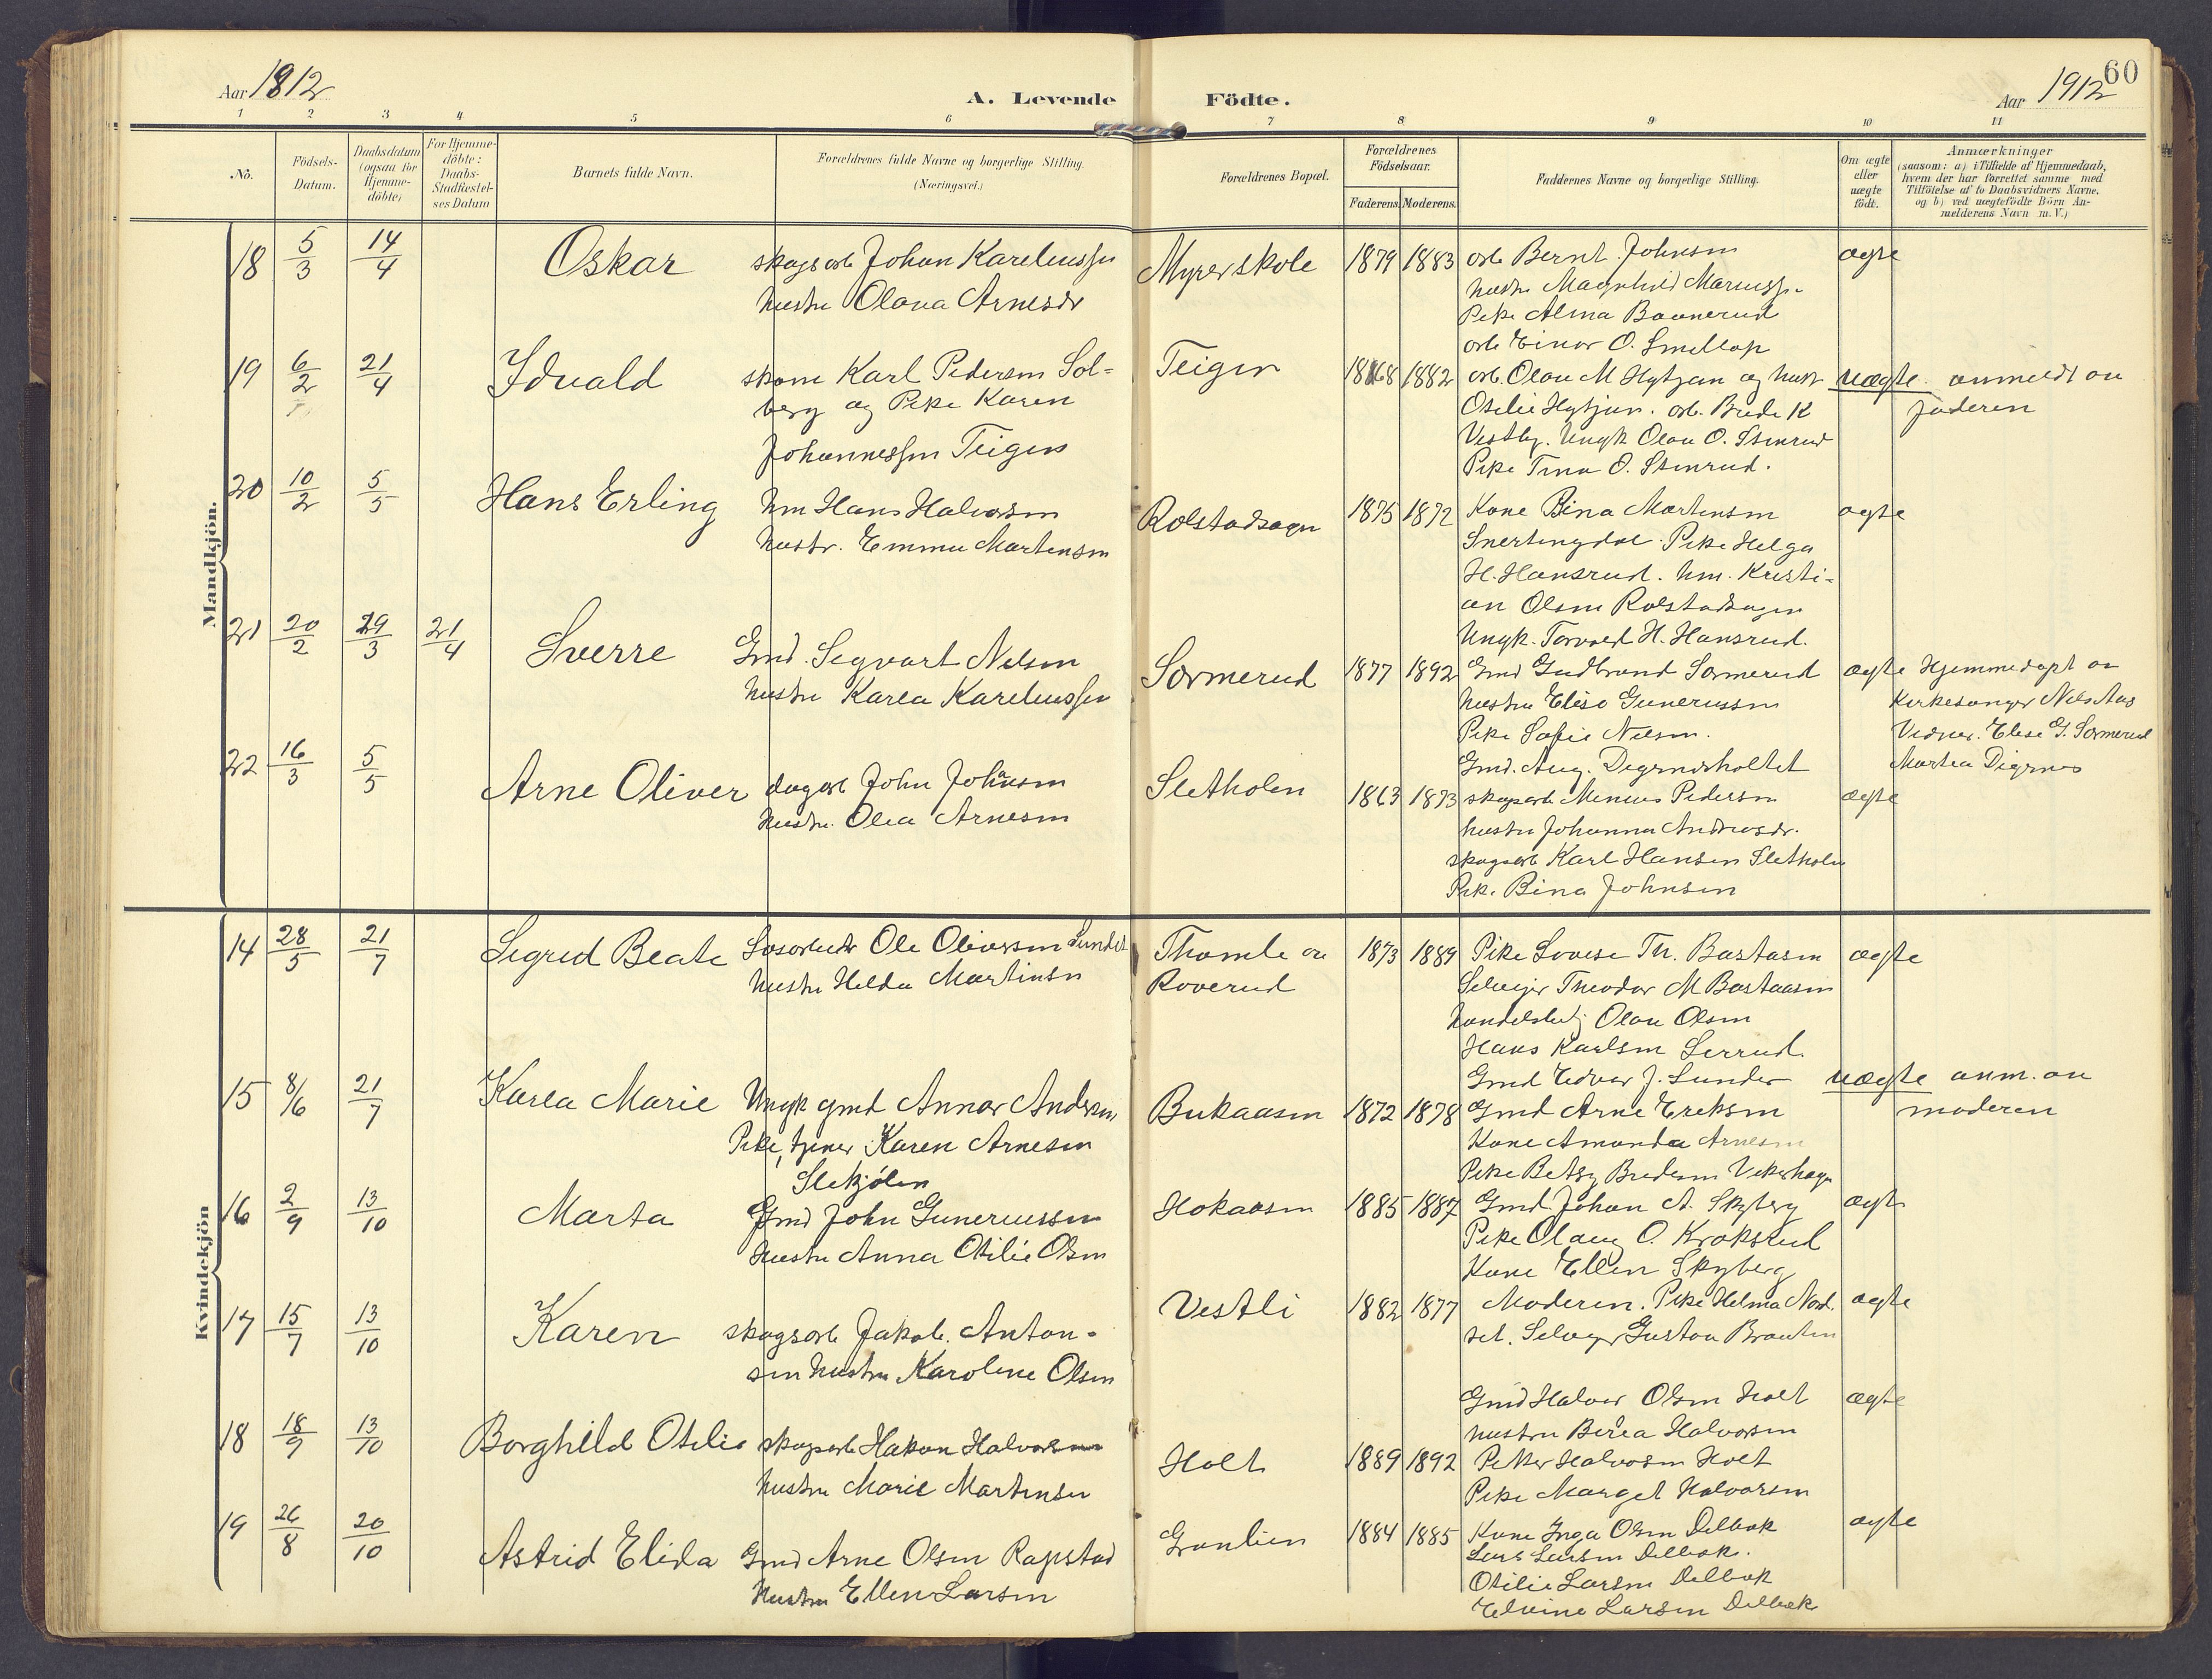 60
Aar 1812
A. Levende Födte.
Aar 1912
1 2 3 4 5 6 7 8 9 10 11
No.
Födsels-
Datum.
Daabsdatum
(ogsaa for
Hjemme-
döbte)
For Hjemme-
döbte:
Daabs-
Stadfæstel-
ses Datum
Barnets fulde Navn.
Forældrenes fulde Navne og borgerlige Stilling.
(Næringsvei.)
Forældrenes Bopæl.
Forældrenes
Födselsaar.
Faderens. Moderens.
Faddernes Navne og borgerlige Stilling.
Om ægte
eller
uægte
födt.
Anmærkninger
(saasom: a) i Tilfælde af Hjemmedaab,
hvem der har forrettet samme med
Tilföielse af to Daabsvidners Navne,
og b) ved uægtefödte Börn An-
melderens Navn m. V.)
Mandkjön.
18 5/3 14/4 Oskar
skogsarb Johan Kareliussen
hustru Olava Arnesdr
Myrerskole 1879 1883
arb Bernt Johnsen
hustru Magnhild Mariuss.
Pike Alma Baanerud
arb Einar O. Smellop
ægte
19 6/2 21/4 Idvald
skom Karl Pedersen Sol-
berg og Pike Karen
Johannessen Teigen
Teigen 1868 1882
arb. Olav M Hytjan og hust
Otilie Hytjan. arb. Brede K
Vestby. Ungk Olav O. Stenrud
Pike Tina O. Stenrud.
uægte anmeldt av
faderen
20 10/2 5/5 Hans Erling
hm Hans Halvorsen
hustr. Emma Martensen
Rolstadsagen 1875 1872
Kone Bina Martensen
Snertingdal. Pike Helga
H. Hansrud. hm. Kristi-
an Olsen Rolstadsagen
Ungk. Torvald H. Hansrud.
ægte
21 20/2 29/3 21/4 Sverre
Gmd. Sigvart Nilsen
hustru Karla Kareliussen
Sørmerud 1877 1892
Gmd Gudbrand Sørmerud
hustru Elise Gunerussen
Pike Sofie Nilsen.
Gmd. Aug. Digernesholtet
ægte Hjemmedøpt av
Kirkesanger Nils Aas
Vidner. Elise G. Sørmerud
Martea Digernes
22 16/3 5/5 Arne Oliver
dagarb John Johansen
hustru. Olea Arnesen
Sletholen 1863 1873
skogsarb Menius Pedersen
hustru Johanna Andreasdr.
skogsarb Karl Hansen Sletholen
Pike. Bina Johnsen
ægte
Kvindekjön
14 28/5 21/7 Sigrid Beate
Ole Oliversen Sundet
hustru Helda Martinsen
Thomle av
Roverud
1873 1889
Pike Lovise Th. Bastasen
Selveier Theodor M Bastaasen
handelsbetj Olav Olsen
Hans Karlsen Serrud.
ægte
15 8/6 21/7 Karla Marie
Ungk gmd Annar Andersen
Pike, tjener Karen Arnesen
Slekjølen
Bukaasen 1872 1878
Gmd Edvar J. Sunder
Gmd Arne Eriksen
Kone Amanda Arnesen
Pike Betsy Bredesen Vikerhagn
uægte anm. av
moderen
16 2/9 13/10 Marta
Gmd John Guneriussen
hustru Anna Otilie Olsen
Hokaasen 1885 1887
Gmd Johan A. Skyberg
Pike Olaug O. Kroksrud
Kone Ellen Skyberg
ægte
17 15/7 13/10 Karen
skogsarb Jakob. Anton-
sen hustru Karoline Olsen
Vestli 1882 1877
Moderen. Pike Helma Nord.
set. Selveger Gustav Braaten
ægte
18 18/9 13/10 Borghild Otilie
skogsarb Hakon Halvorsen
hustru Marie Martinsen
Holt 1889 1892
Gmd Halvor Olsen Holt
hustru Berea Halvorsen
Petter Halvorsen Holt
Pike Marget Halvorsen
ægte
19 26/8 20/10 Astrid Elida
Gmd Arne Olsen Rapstad
hustru Ellen Larsen
Granlien 1884 1885
Kone Inga Olsen Delbæk
Lars Larsen Delbæk.
Otilie Larsen Delbæk
Elvine Larsen Delbæk
ægte